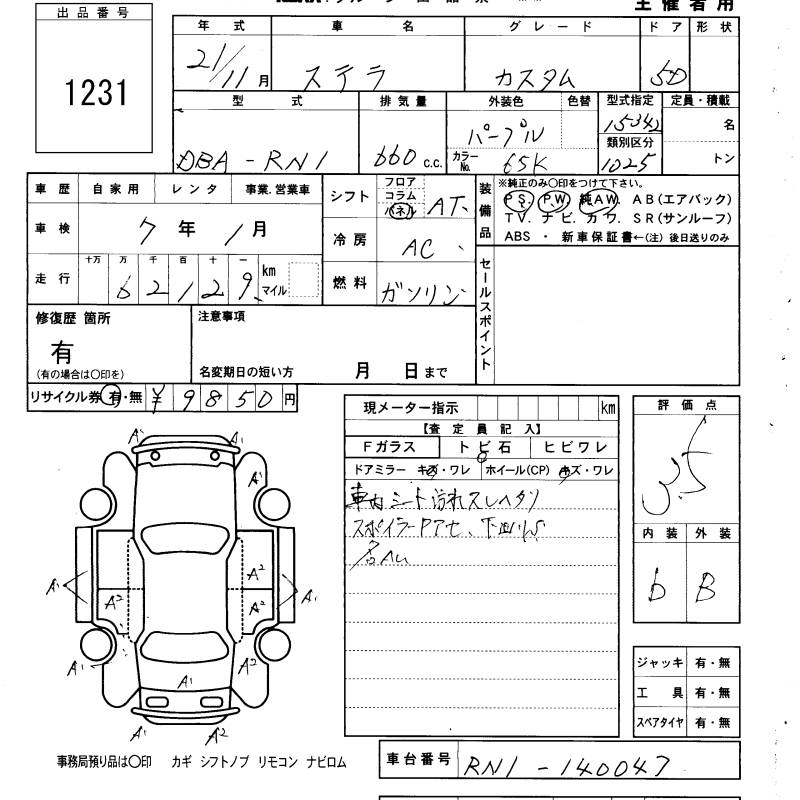 主催者用
出品番号
1231
年式 車名 グレード ドア 形状
21/11月 ステラ カスタム 5D
型式 排気量 外装色 色替 型式指定 定員・積載
DBA-RN1 660 c.c. パープル カラーNo. 65K 15342 類別区分 1025 名 トン
車歴 自家用 レンタ 事業.営業車
車検 7年 1月
走行 十万 万 千 百 十 一 km マイル
62129
シフト フロア コラム パネル AT
冷房 AC
燃料 ガソリン
装備品 ※純正のみ〇印をつけて下さい。
PS. PW. 純AW. AB(エアバック)
TV. ナビ. カワ. SR(サンルーフ)
ABS ・ 新車保証書←(注) 後日送りのみ
セールスポイント
修復歴 箇所
有
(有の場合は〇印を)
注意事項
名変期日の短い方 月 日まで
リサイクル券 有・無 ¥9850円
現メーター指示 km
【査定員記入】
Fガラス トビ石 ヒビワレ
ドアミラー キズ・ワレ ホイール(CP) キズ・ワレ
車内シート汚れスレヘタリ
スポイラーPアセ、下回り
評価点
3.5
内装 外装
b B
A1 A1
A1
A2
A1 A2 A2 A1
A1 A2
A1
A2 A2
ジャッキ 有・無
工具 有・無
スペアタイヤ 有・無
事務局預り品は〇印 カギ シフトノブ リモコン ナビロム
車台番号 RN1-140047